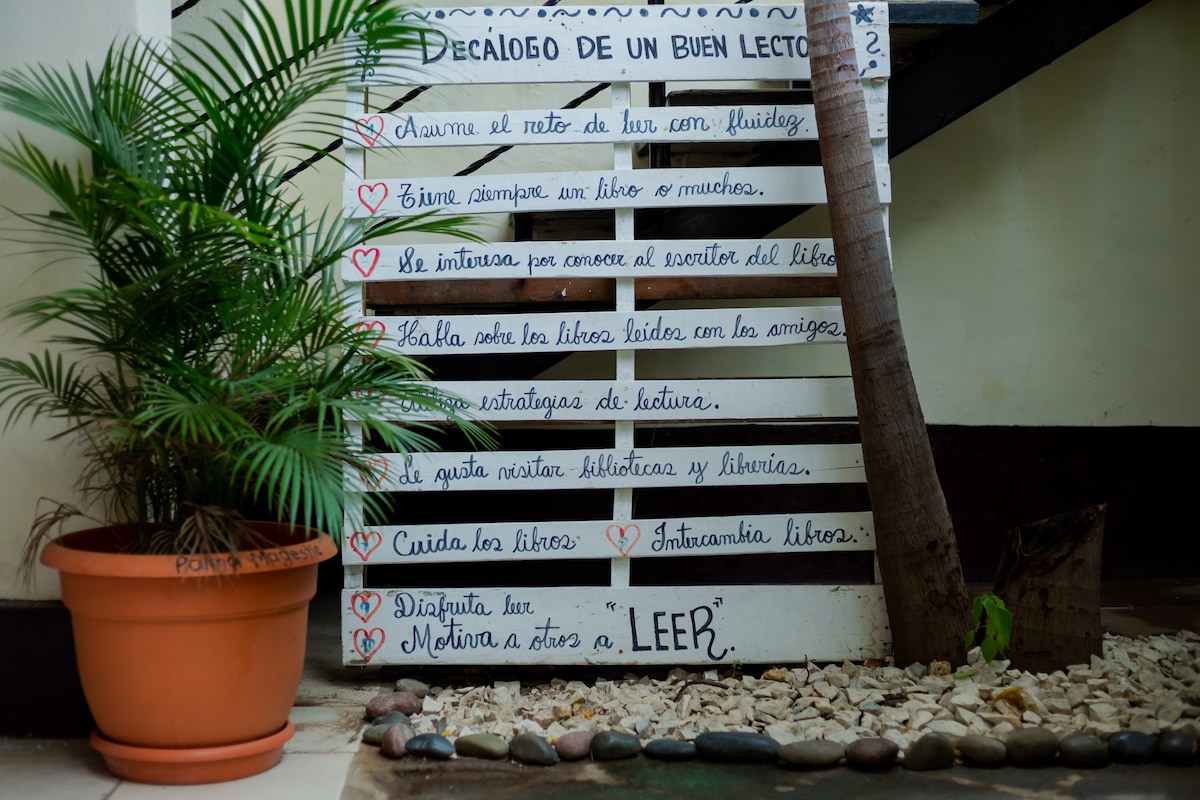 DECÁLOGO DE UN BUEN LECTO
1 Asume el reto de leer con fluidez.
Tiene siempre un libro o muchos.
Se interesa por conocer al escritor del libro
Habla sobre los libros leídos con los amigos.
Utiliza estrategias de lectura.
Le gusta visitar bibliotecas y librerías.
Cuida los libros Intercambia libros.
Disfruta leer
10 Motiva a otros a "LEER".
Palma Magestic